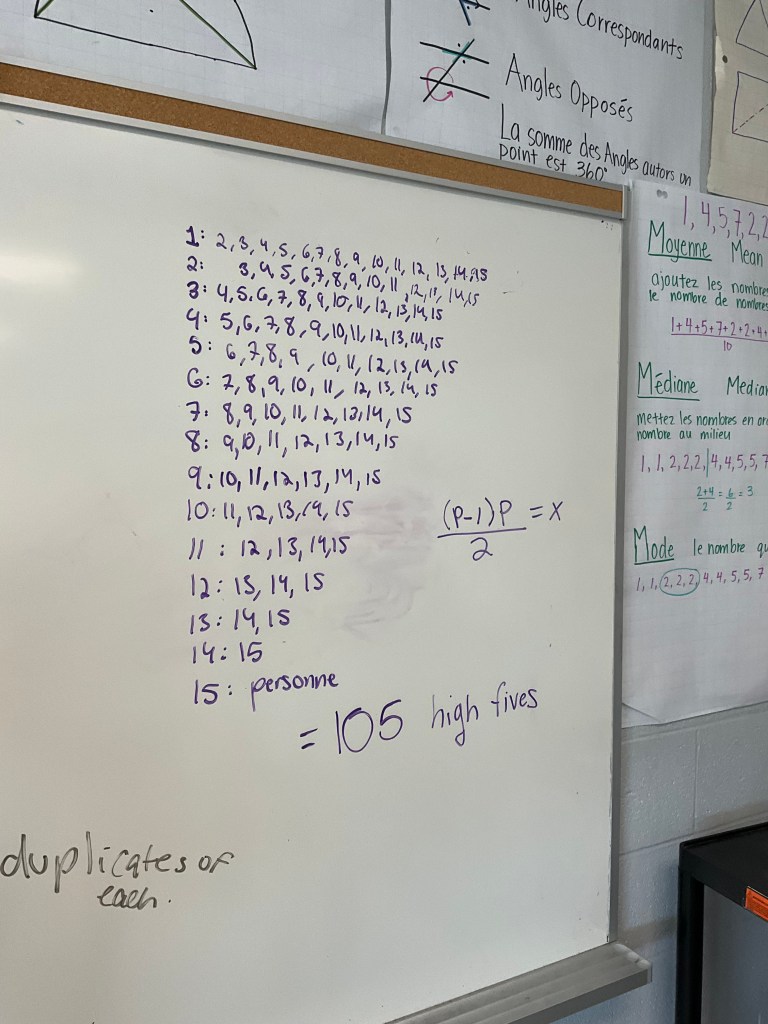 Angles Correspondants
Angles Opposés
La somme des Angles autors un
point est 360°
1: 2, 3, 4, 5, 6, 7, 8, 9, 10, 11, 12, 13, 14, 15
2: 3, 4, 5, 6, 7, 8, 9, 10, 11, 12, 13, 14, 15
3: 4, 5, 6, 7, 8, 9, 10, 11, 12, 13, 14, 15
4: 5, 6, 7, 8, 9, 10, 11, 12, 13, 14, 15
5: 6, 7, 8, 9, 10, 11, 12, 13, 14, 15
6: 7, 8, 9, 10, 11, 12, 13, 14, 15
7: 8, 9, 10, 11, 12, 13, 14, 15
8: 9, 10, 11, 12, 13, 14, 15
9: 10, 11, 12, 13, 14, 15
10: 11, 12, 13, 14, 15
11: 12, 13, 14, 15
12: 13, 14, 15
13: 14, 15
14: 15
15: personne
= 105 high fives
(P-1)P = x
2
duplicates of
each.
1, 4, 5, 7, 2, 2
Moyenne Mean
ajoutez les nombres
le nombre de nombres
1+4+5+7+2+2+4+
10
Médiane Median
mettez les nombres en or
nombre au milieu
1, 1, 2, 2, 2, | 4, 4, 5, 5, 7
2+4 = 6 = 3
2 2
Mode le nombre qu
1, 1, 2, 2, 2, 4, 4, 5, 5, 7